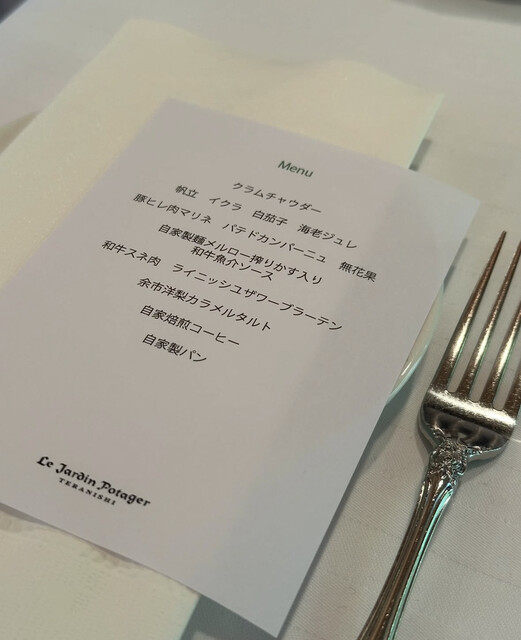 Menu
クラムチャウダー
帆立　イクラ　白茄子　海老ジュレ
豚ヒレ肉マリネ　パテドカンパーニュ　無花果
自家製麺メルロー搾りかす入り
和牛魚介ソース
和牛スネ肉　ライニッシュザワーブラーテン
余市洋梨カラメルタルト
自家焙煎コーヒー
自家製パン
Le Jardin Potager
TERANISHI